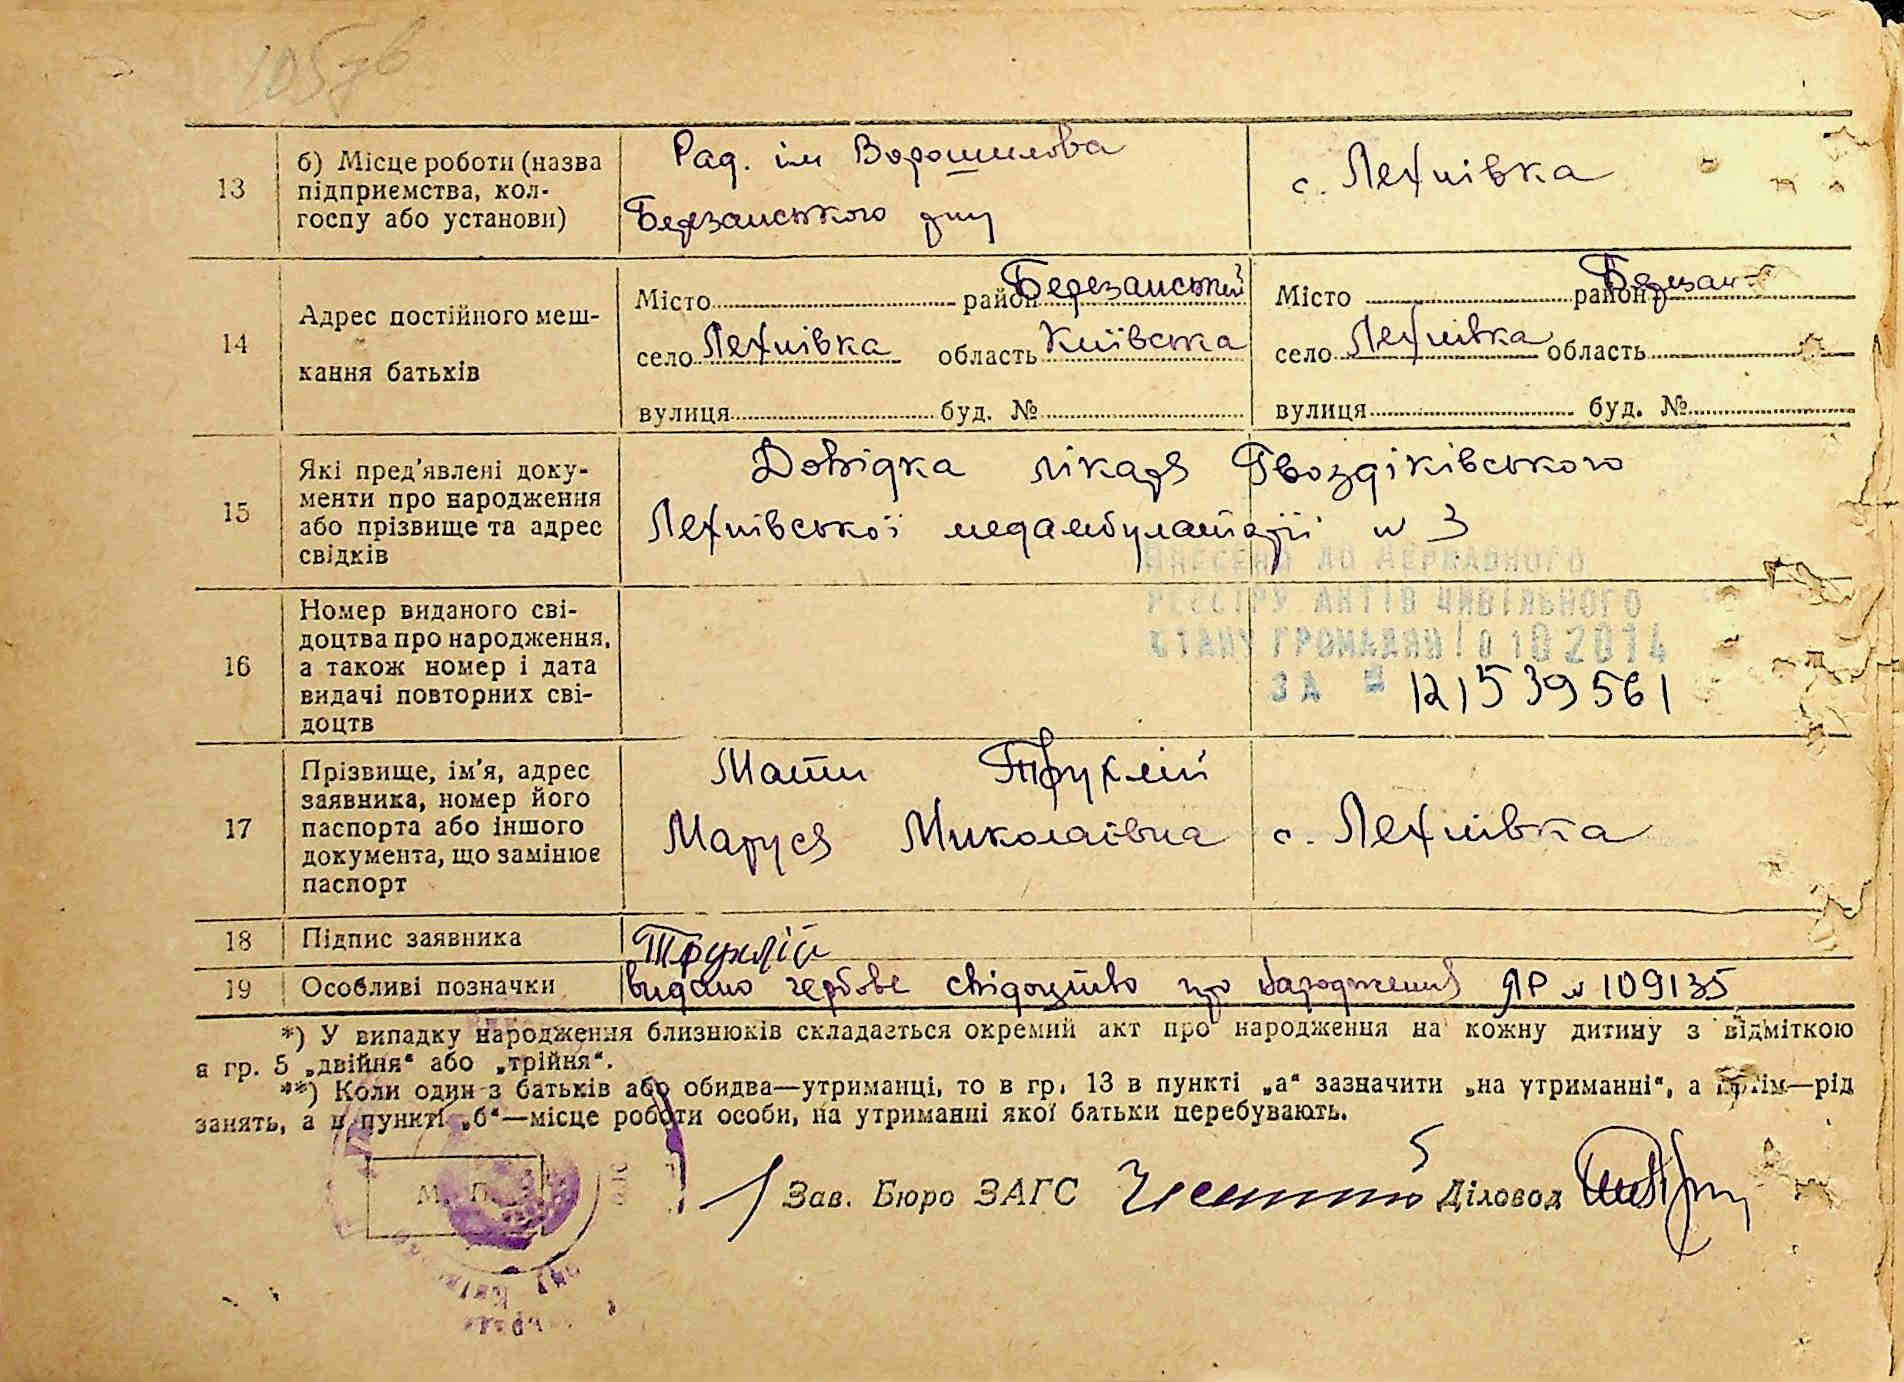 105 зв
13
б) Місце роботи (назва
підприємства, кол-
госпу або установи)
Рад. ім Ворошилова
Березанського р-ну
с. Лехнівка
14
Адрес постійного меш-
кання батьків
Місто район Березанський
село Лехнівка область Київська
вулиця буд. №
Місто район Березан-
село Лехнівка область
вулиця буд. №
15
Які пред'явлені доку-
менти про народження
або прізвище та адрес
свідків
Довідка лікаря Гвоздіківського
Лехнівської медамбулаторії № 3
16
Номер виданого сві-
доцтва про народження,
а також номер і дата
видачі повторних сві-
доцтв
ВНЕСЕНО ДО ДЕРЖАВНОГО
РЕЄСТРУ АКТІВ ЦИВІЛЬНОГО
СТАНУ ГРОМАДЯН 10 10 2014
ЗА № 121539561
17
Прізвище, ім'я, адрес
заявника, номер його
паспорта або іншого
документа, що замінює
паспорт
Мати Трухлій
Маруся Миколаївна с. Лехнівка
18
Підпис заявника
Трухлій
19
Особливі позначки
видано гербове свідоцтво про народження ЯР № 109135
*) У випадку народження близнюків складається окремий акт про народження на кожну дитину з відміткою
в гр. 5 „двійня“ або „трійня“.
**) Коли один з батьків або обидва—утриманці, то в гр. 13 в пункті „а“ зазначити „на утриманні“, а потім—рід
занять, а в пункті „б“—місце роботи особи, на утриманні якої батьки перебувають.
М. П.
Зав. Бюро ЗАГС
Діловод